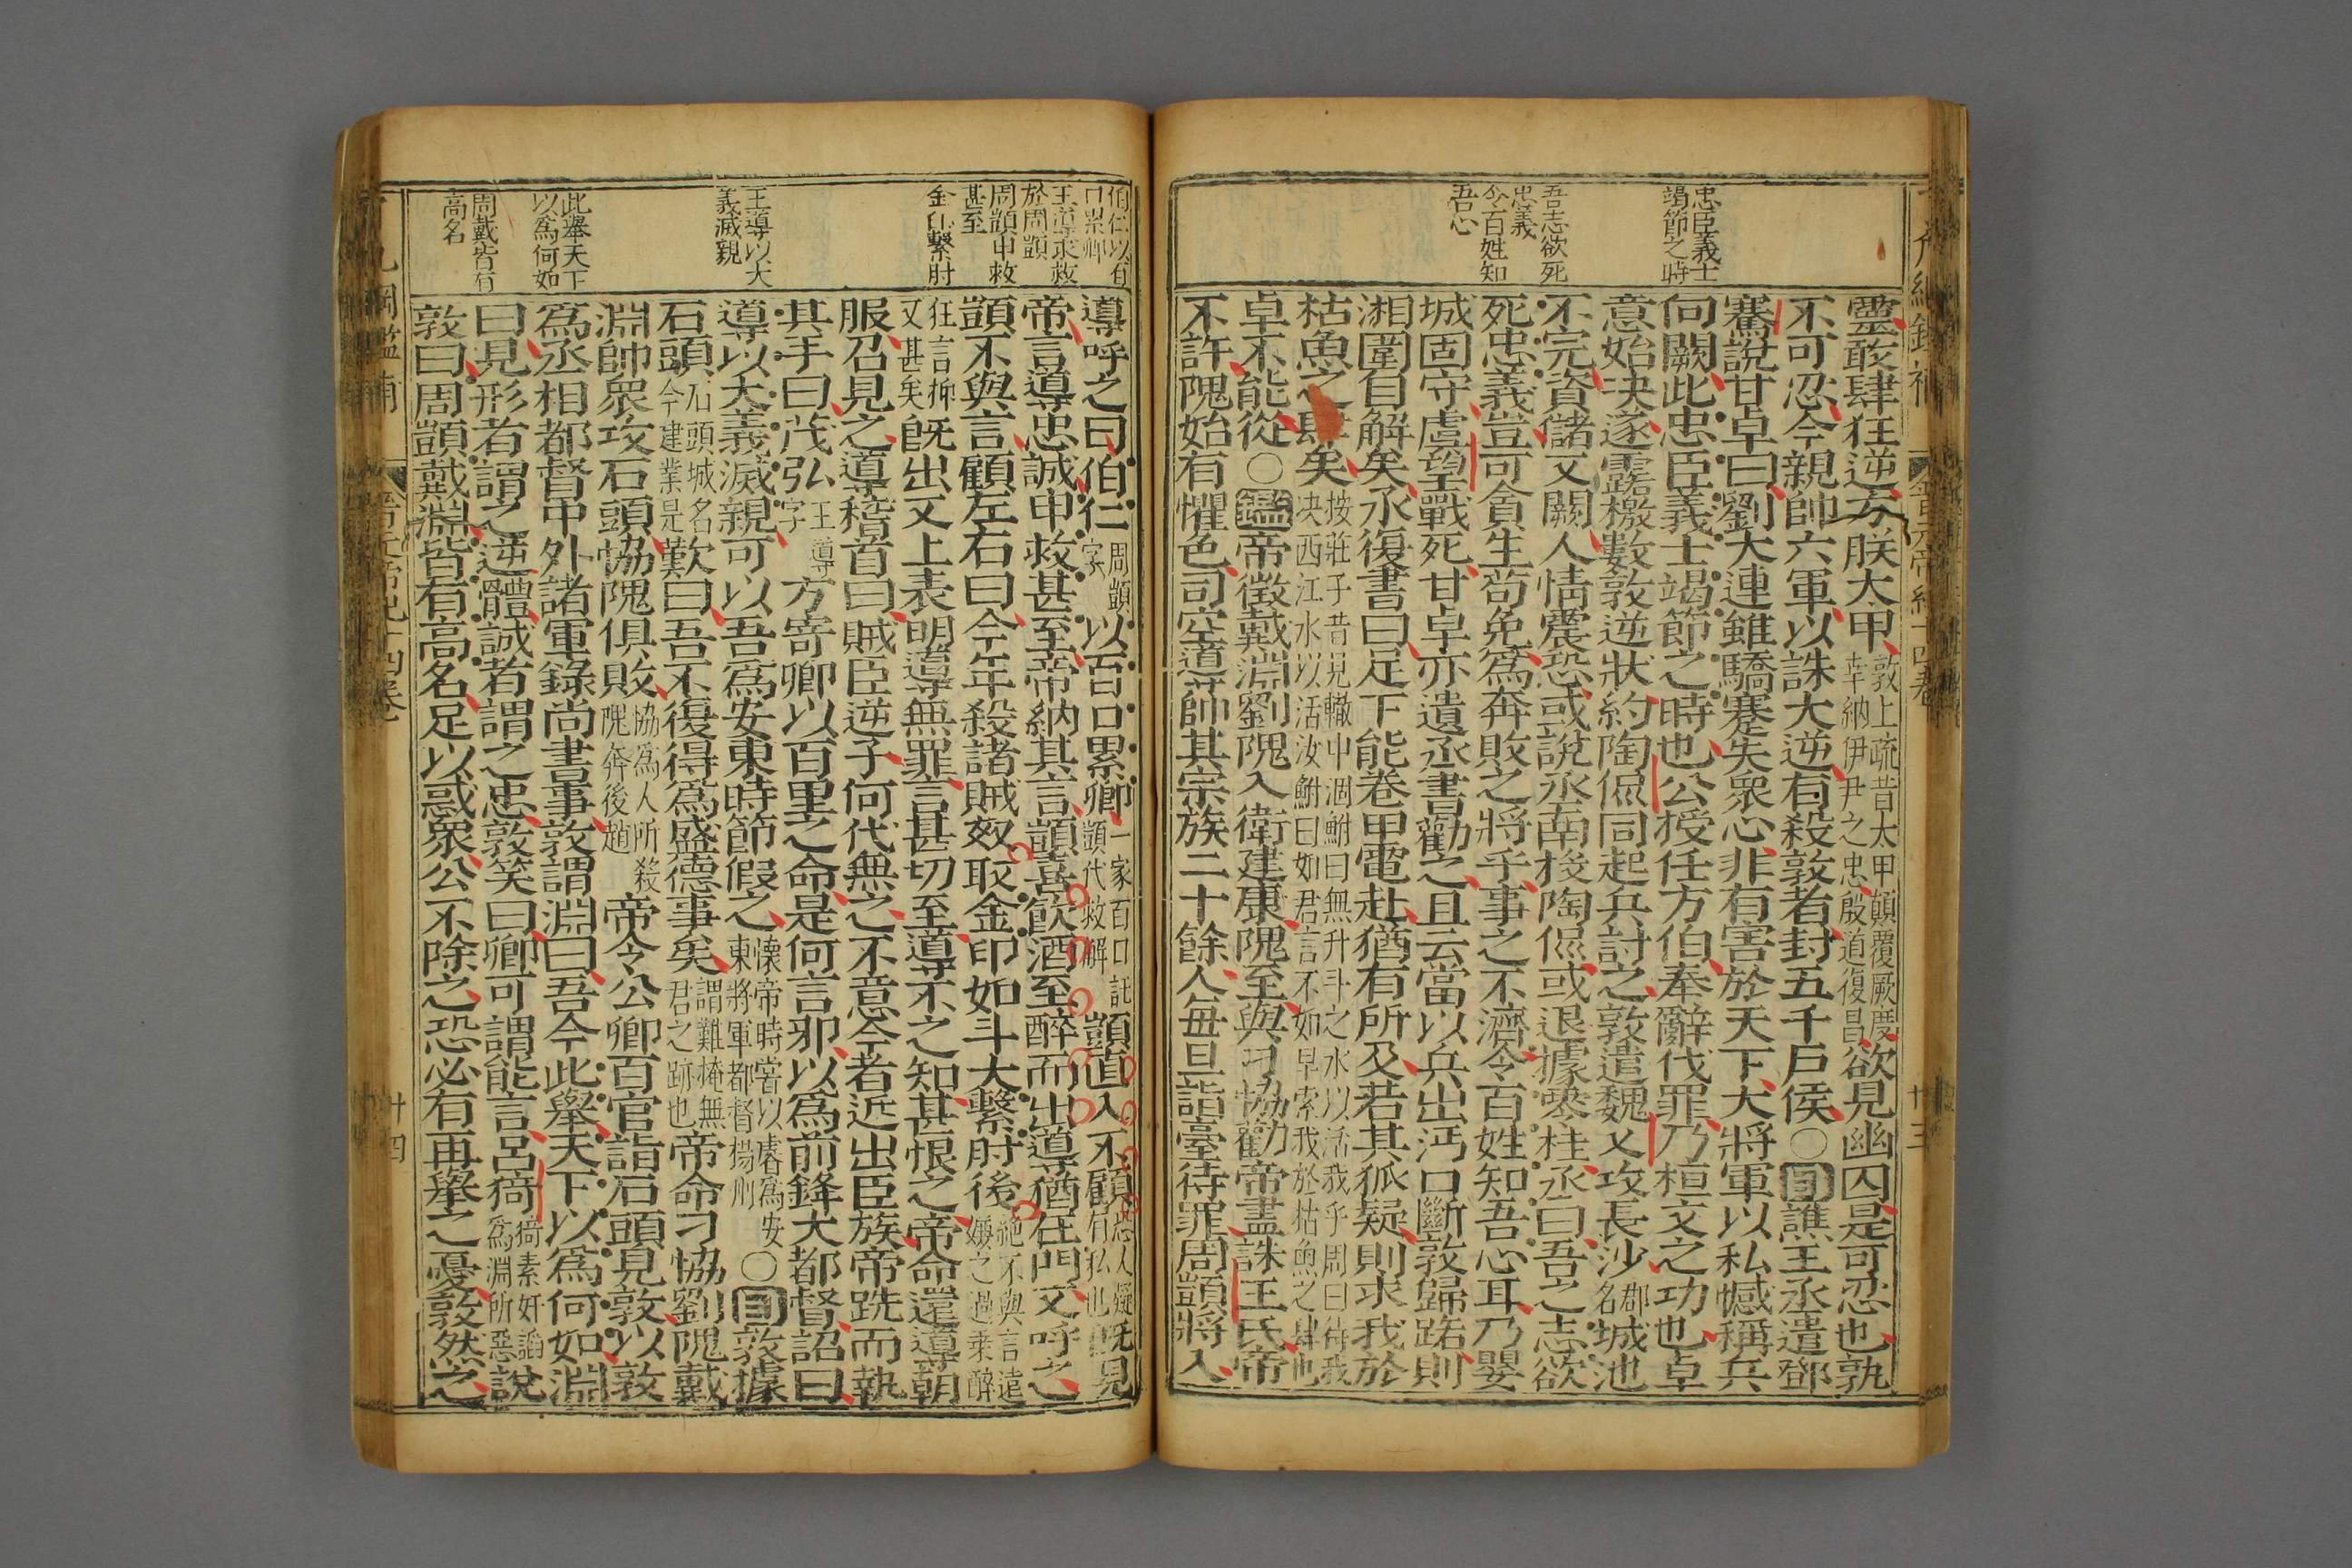 忠臣義士
竭節之時
吾志欲死
忠義
今百姓知
吾心
靈敢肆狂逆方朕大甲敦上疏昔太甲顛覆厥度幸納伊尹之忠殷道復昌欲見幽囚是可忍也孰
不可忍今親帥六軍以誅大逆有殺敦者封五千戶侯○目譙王丞遣鄧
騫說甘卓曰劉大連雖驕蹇失眾心非有害於天下大將軍以私憾稱兵
向闕此忠臣義士竭節之時也公授任方伯奉辭伐罪乃桓文之功也卓
意始决遂露檄數敦逆狀約陶侃同起兵討之敦遣魏乂攻長沙郡名城池
不完資儲又闕人情震恐或說丞南投陶侃或退據零桂丞曰吾之志欲
死忠義豈可貪生苟免爲奔敗之將乎事之不濟令百姓知吾心耳乃嬰
城固守虞望戰死甘卓亦遺丞書勸之且云當以兵出沔口斷敦歸路則
湘圍自解矣丞復書曰足下能卷甲電赴猶有所及若其狐疑則求我於
枯魚之肆矣按莊子昔見轍中涸鮒曰無升斗之水以活我乎周曰待我决西江水以活汝鮒曰如君言不如早索我於枯魚之肆也
卓不能從○鑑帝徵戴淵劉隗入衛建康隗至與刁協勸帝盡誅王氏帝
不許隗始有懼色司空導帥其宗族二十餘人每旦詣臺待罪周顗將入
伯仁以百
口累卿
王導求救
於周顗
周顗申救
甚至
金印繫肘
王導以大
義滅親
此舉天下
以爲何如
周戴皆有
高名
導呼之曰伯仁周顗字以百口累卿一家百口託顗代救解顗直入不顧恐人疑既見
帝言導忠誠申救甚至帝納其言顗喜飲酒至醉而出導猶在門又呼之
顗不與言顧左右曰今年殺諸賊奴取金印如斗大繫肘後絕不與言遠嫌之過乘醉
狂言抑又甚矣既出又上表明導無罪言甚切至導不之知甚恨之帝命還導朝
服召見之導稽首曰賊臣逆子何代無之不意今者近出臣族帝跣而執
其手曰茂弘王導字方寄卿以百里之命是何言邪以爲前鋒大都督詔曰
導以大義滅親可以吾爲安東時節假之懷帝時嘗以睿爲安東將軍都督揚州○目敦據
石頭石頭城名今建業是歎曰吾不復得爲盛德事矣謂難掩無君之跡也帝命刁協劉隗戴
淵帥眾攻石頭協隗俱敗協爲人所殺隗奔後趙帝令公卿百官詣石頭見敦以敦
爲丞相都督中外諸軍錄尚書事敦謂淵曰吾今此舉天下以爲何如淵
曰見形者謂之逆體誠者謂之忠敦笑曰卿可謂能言呂猗猗素奸諂爲淵所惡說
敦曰周顗戴淵皆有高名足以惑眾公不除之恐必有再舉之憂敦然之
晉元帝紀十四卷
廿四